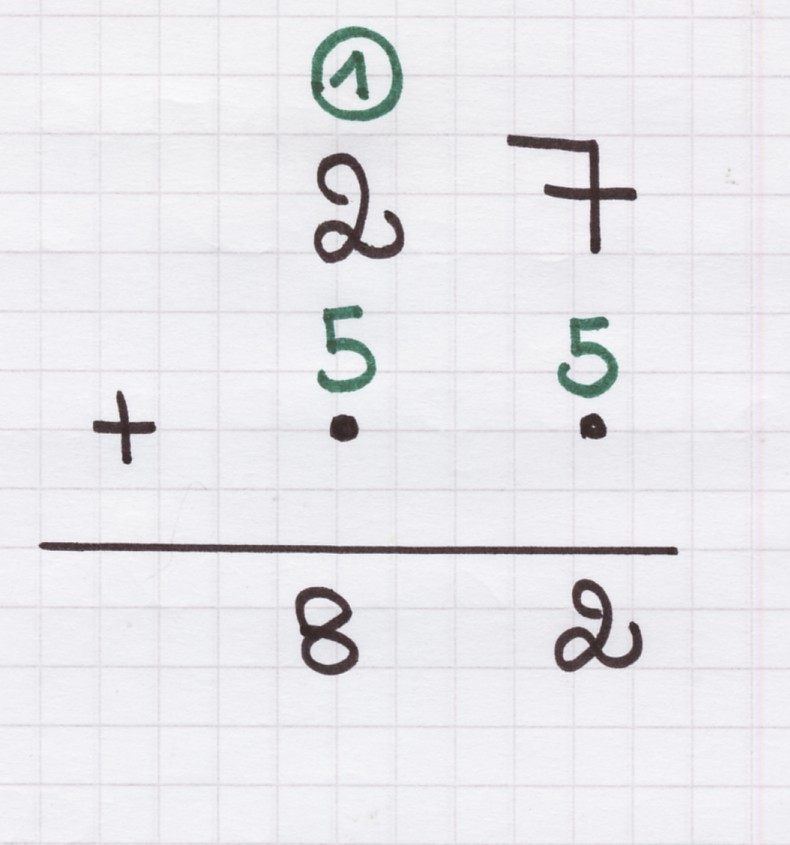 ①
2 7
5 5
+ • •
8 2